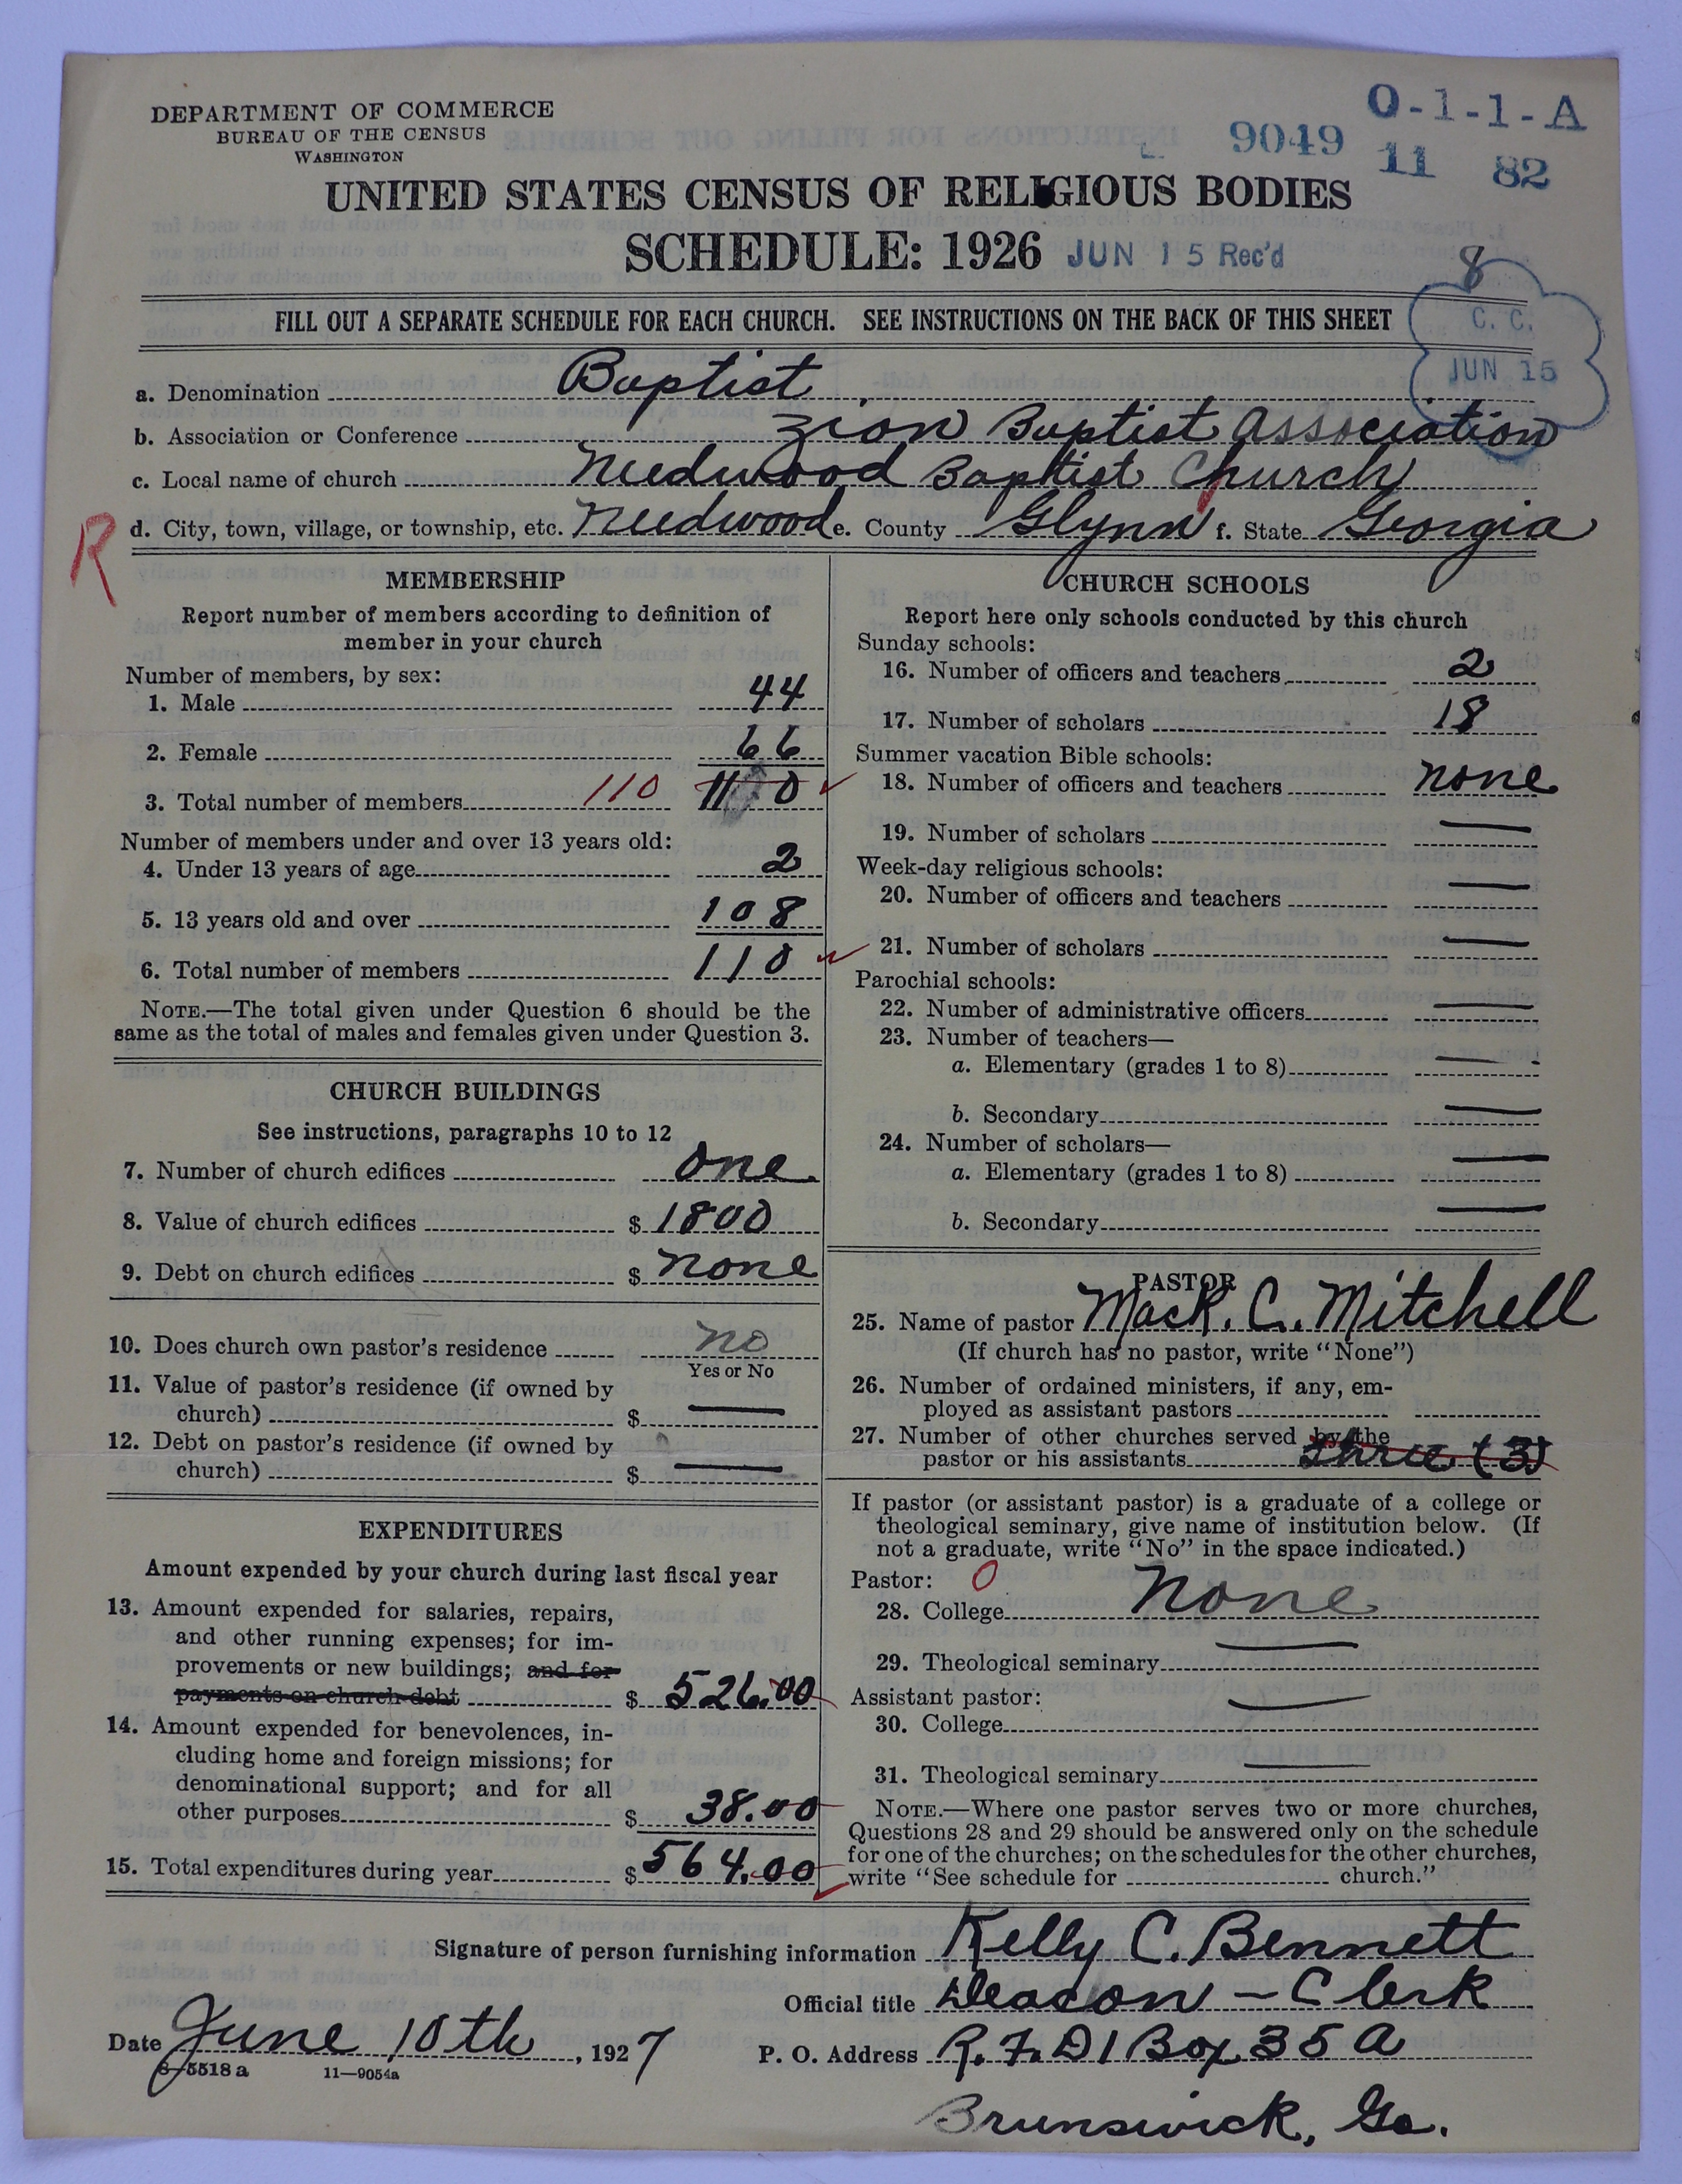 DEPARTMENT OF COMMERCE
BUREAU OF THE CENSUS
WASHINGTON
O-1-1-A
9049 11 82
UNITED STATES CENSUS OF RELIGIOUS BODIES
SCHEDULE: 1926 JUN 15 Rec'd
8
FILL OUT A SEPARATE SCHEDULE FOR EACH CHURCH. SEE INSTRUCTIONS ON THE BACK OF THIS SHEET
C. C.
JUN 15
a. Denomination Baptist
b. Association or Conference Zion Baptist Association
c. Local name of church Needwood Baptist Church
R
d. City, town, village, or township, etc. Needwood e. County Glynn f. State Georgia
MEMBERSHIP
Report number of members according to definition of
member in your church
Number of members, by sex:
1. Male 44
2. Female 66
3. Total number of members 110 110
Number of members under and over 13 years old:
4. Under 13 years of age 2
5. 13 years old and over 108
6. Total number of members 110
NOTE.—The total given under Question 6 should be the
same as the total of males and females given under Question 3.
CHURCH BUILDINGS
See instructions, paragraphs 10 to 12
7. Number of church edifices one
8. Value of church edifices $ 1800
9. Debt on church edifices $ none
10. Does church own pastor's residence no
Yes or No
11. Value of pastor's residence (if owned by
church) $ —
12. Debt on pastor's residence (if owned by
church) $ —
EXPENDITURES
Amount expended by your church during last fiscal year
13. Amount expended for salaries, repairs,
and other running expenses; for im-
provements or new buildings; and for
payments on church debt $ 526.00
14. Amount expended for benevolences, in-
cluding home and foreign missions; for
denominational support; and for all
other purposes $ 38.00
15. Total expenditures during year $ 564.00
CHURCH SCHOOLS
Report here only schools conducted by this church
Sunday schools:
16. Number of officers and teachers 2
17. Number of scholars 18
Summer vacation Bible schools:
18. Number of officers and teachers none
19. Number of scholars —
Week-day religious schools:
20. Number of officers and teachers —
21. Number of scholars —
Parochial schools:
22. Number of administrative officers —
23. Number of teachers—
a. Elementary (grades 1 to 8) —
b. Secondary —
24. Number of scholars—
a. Elementary (grades 1 to 8) —
b. Secondary —
PASTOR
25. Name of pastor Mack. C. Mitchell
(If church has no pastor, write "None")
26. Number of ordained ministers, if any, em-
ployed as assistant pastors
27. Number of other churches served by the
pastor or his assistants three (3)
If pastor (or assistant pastor) is a graduate of a college or
theological seminary, give name of institution below. (If
not a graduate, write "No" in the space indicated.)
Pastor: 0
28. College None
29. Theological seminary —
Assistant pastor:
30. College —
31. Theological seminary —
NOTE.—Where one pastor serves two or more churches,
Questions 28 and 29 should be answered only on the schedule
for one of the churches; on the schedules for the other churches,
write "See schedule for church."
Signature of person furnishing information Kelly C. Bennett
Official title Deacon – Clerk
Date June 10th, 1927 P. O. Address R. F. D 1 Box 35 A
8—5518a 11—9054a
Brunswick, Ga.